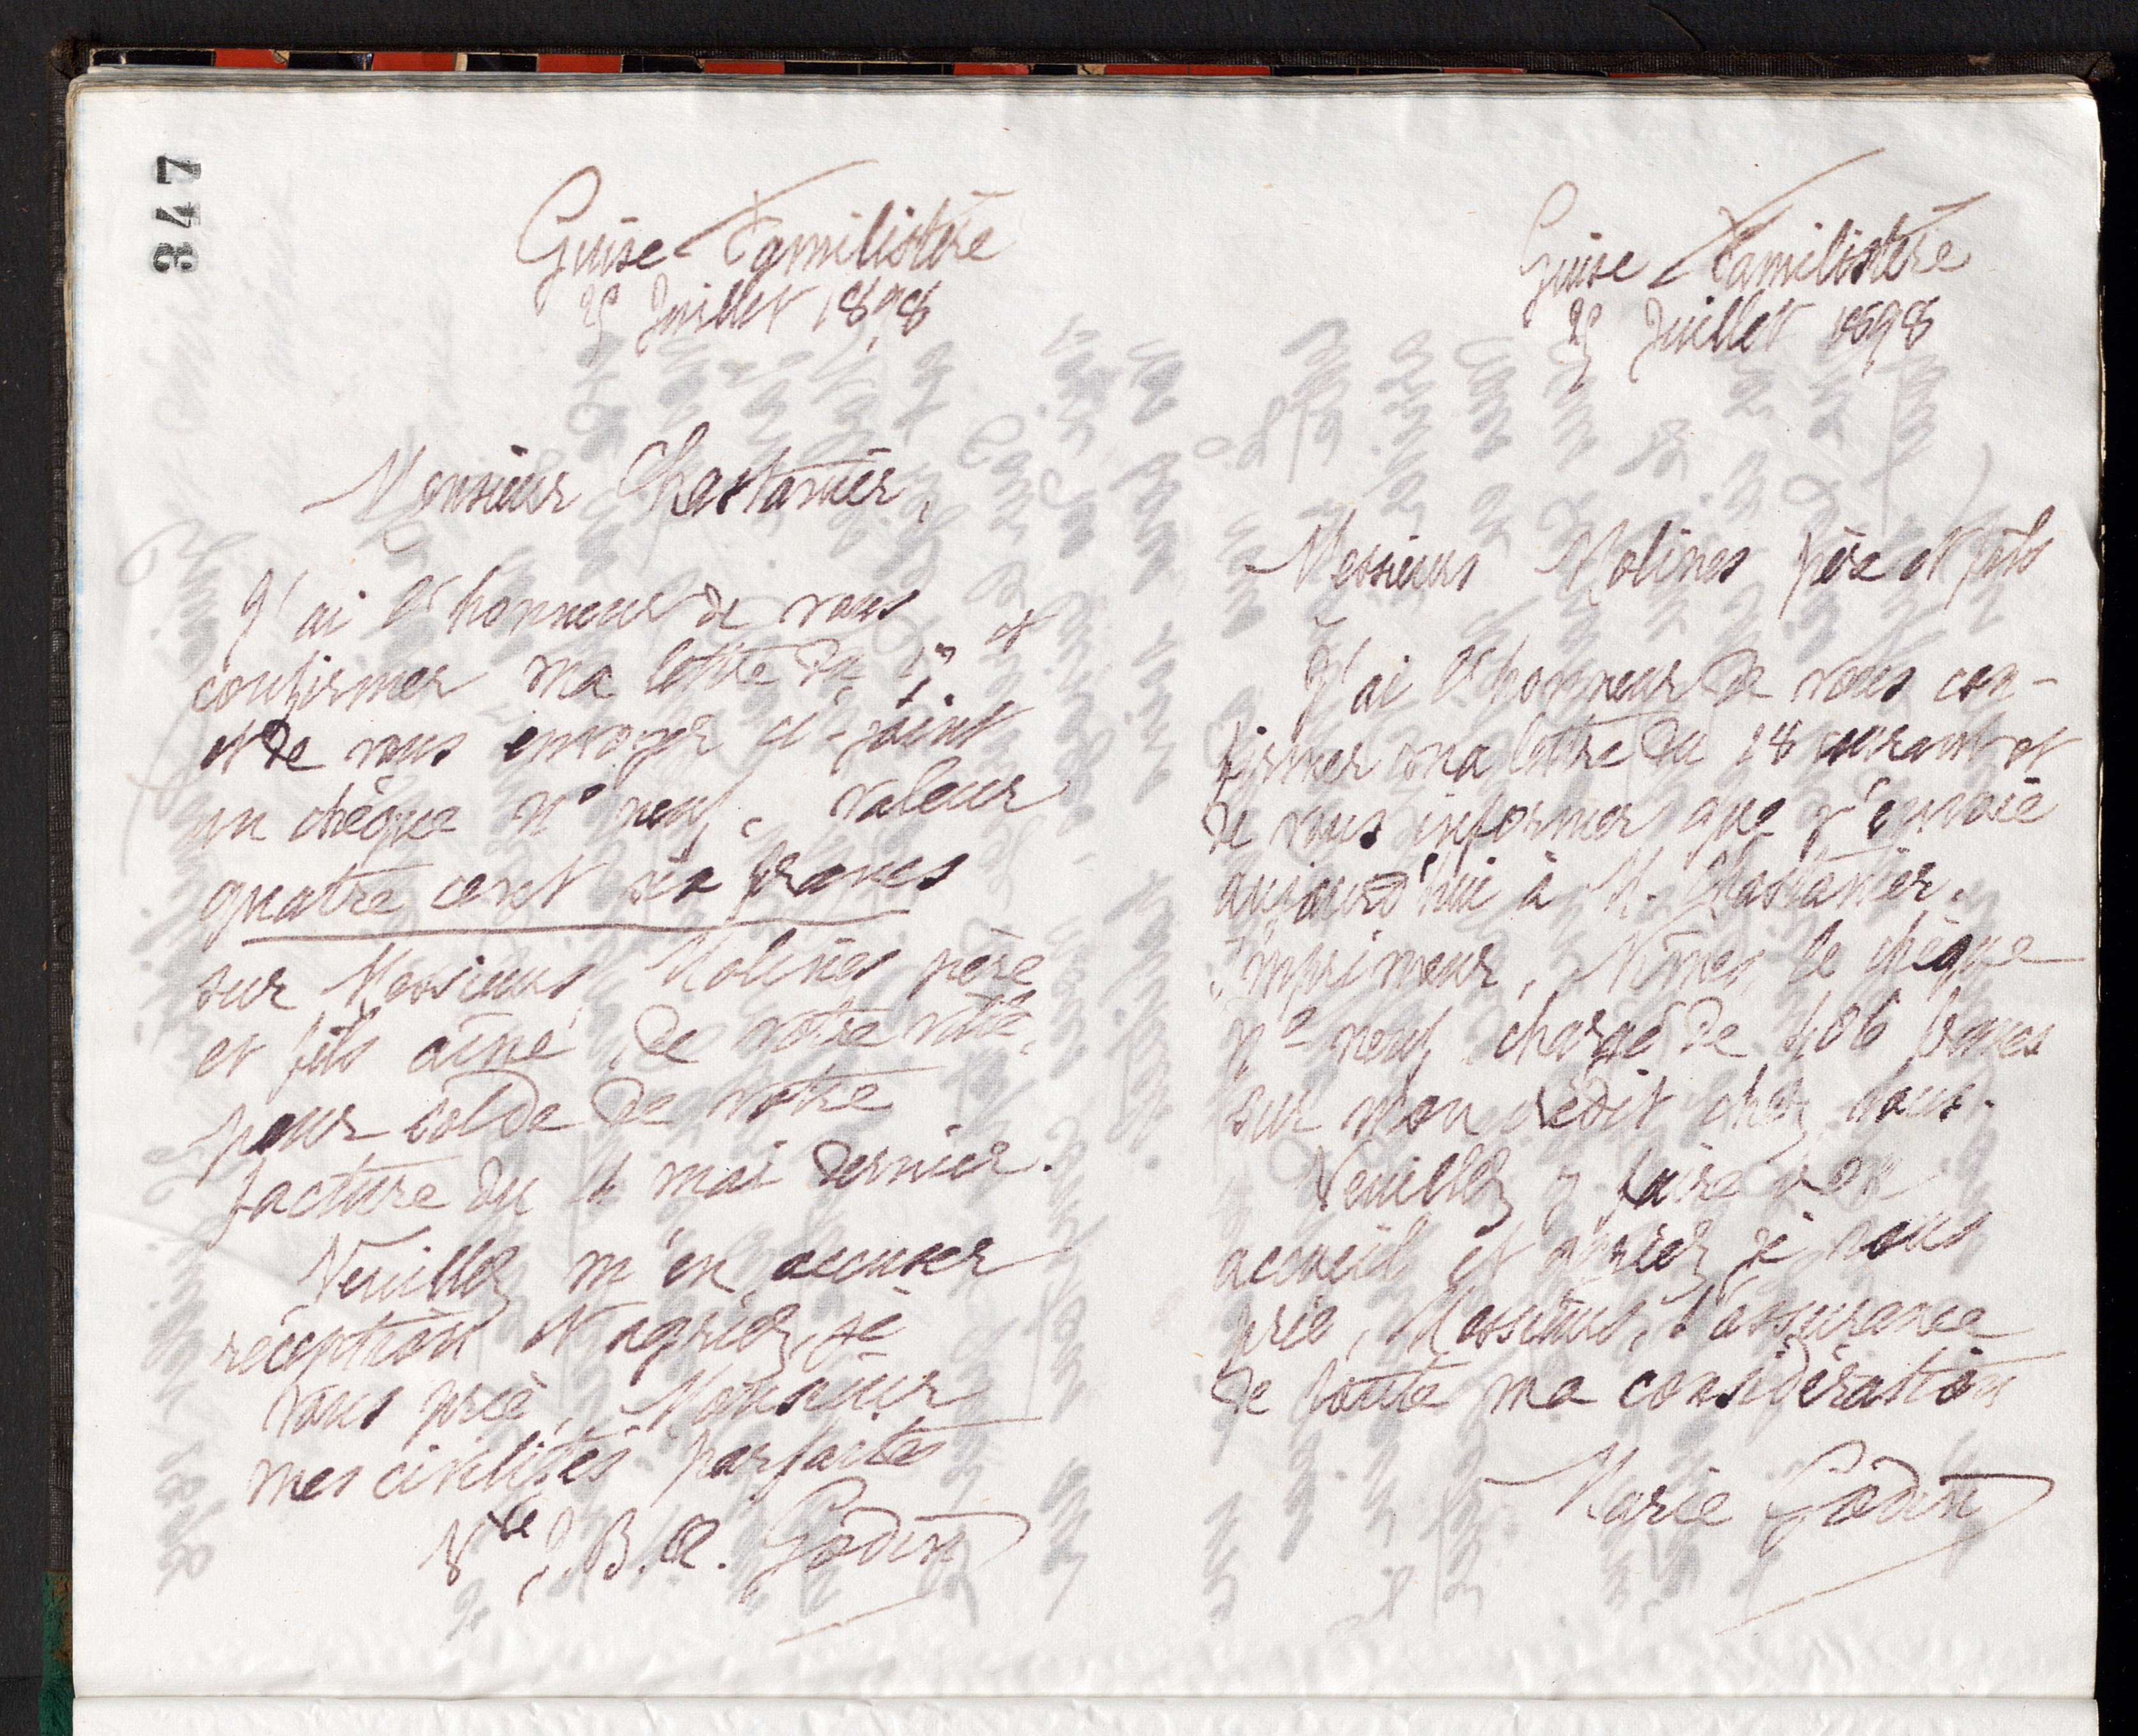 347
Guise Familistère
25 Juillet 1898
Monsieur Chastanier,
J'ai l'honneur de vous
confirmer ma lettre du et
et de vous envoyer ci-joint
un chèque n° neuf, valeur
quatre cent six francs
sur Messieurs Molines père
et fils aîné, de votre ville,
pour solde de votre
facture du 4 mai dernier.
Veuillez m'en accuser
réception et agréer, je
vous prie, Monsieur
mes civilités parfaites
Vve J. B. A. Godin
Guise Familistère
25 Juillet 1898
Messieurs Molines père et fils
J'ai l'honneur de vous con-
firmer ma lettre du 18 courant et
de vous informer que j'envoie
aujourd'hui à M. Chastanier,
Imprimeur, Nîmes, le chèque
n° neuf chargé de 406 francs
sur mon crédit chez vous.
Veuillez y faire bon
accueil et agréer, je vous
prie, Messieurs, l'assurance
de toute ma considération
Marie Godin